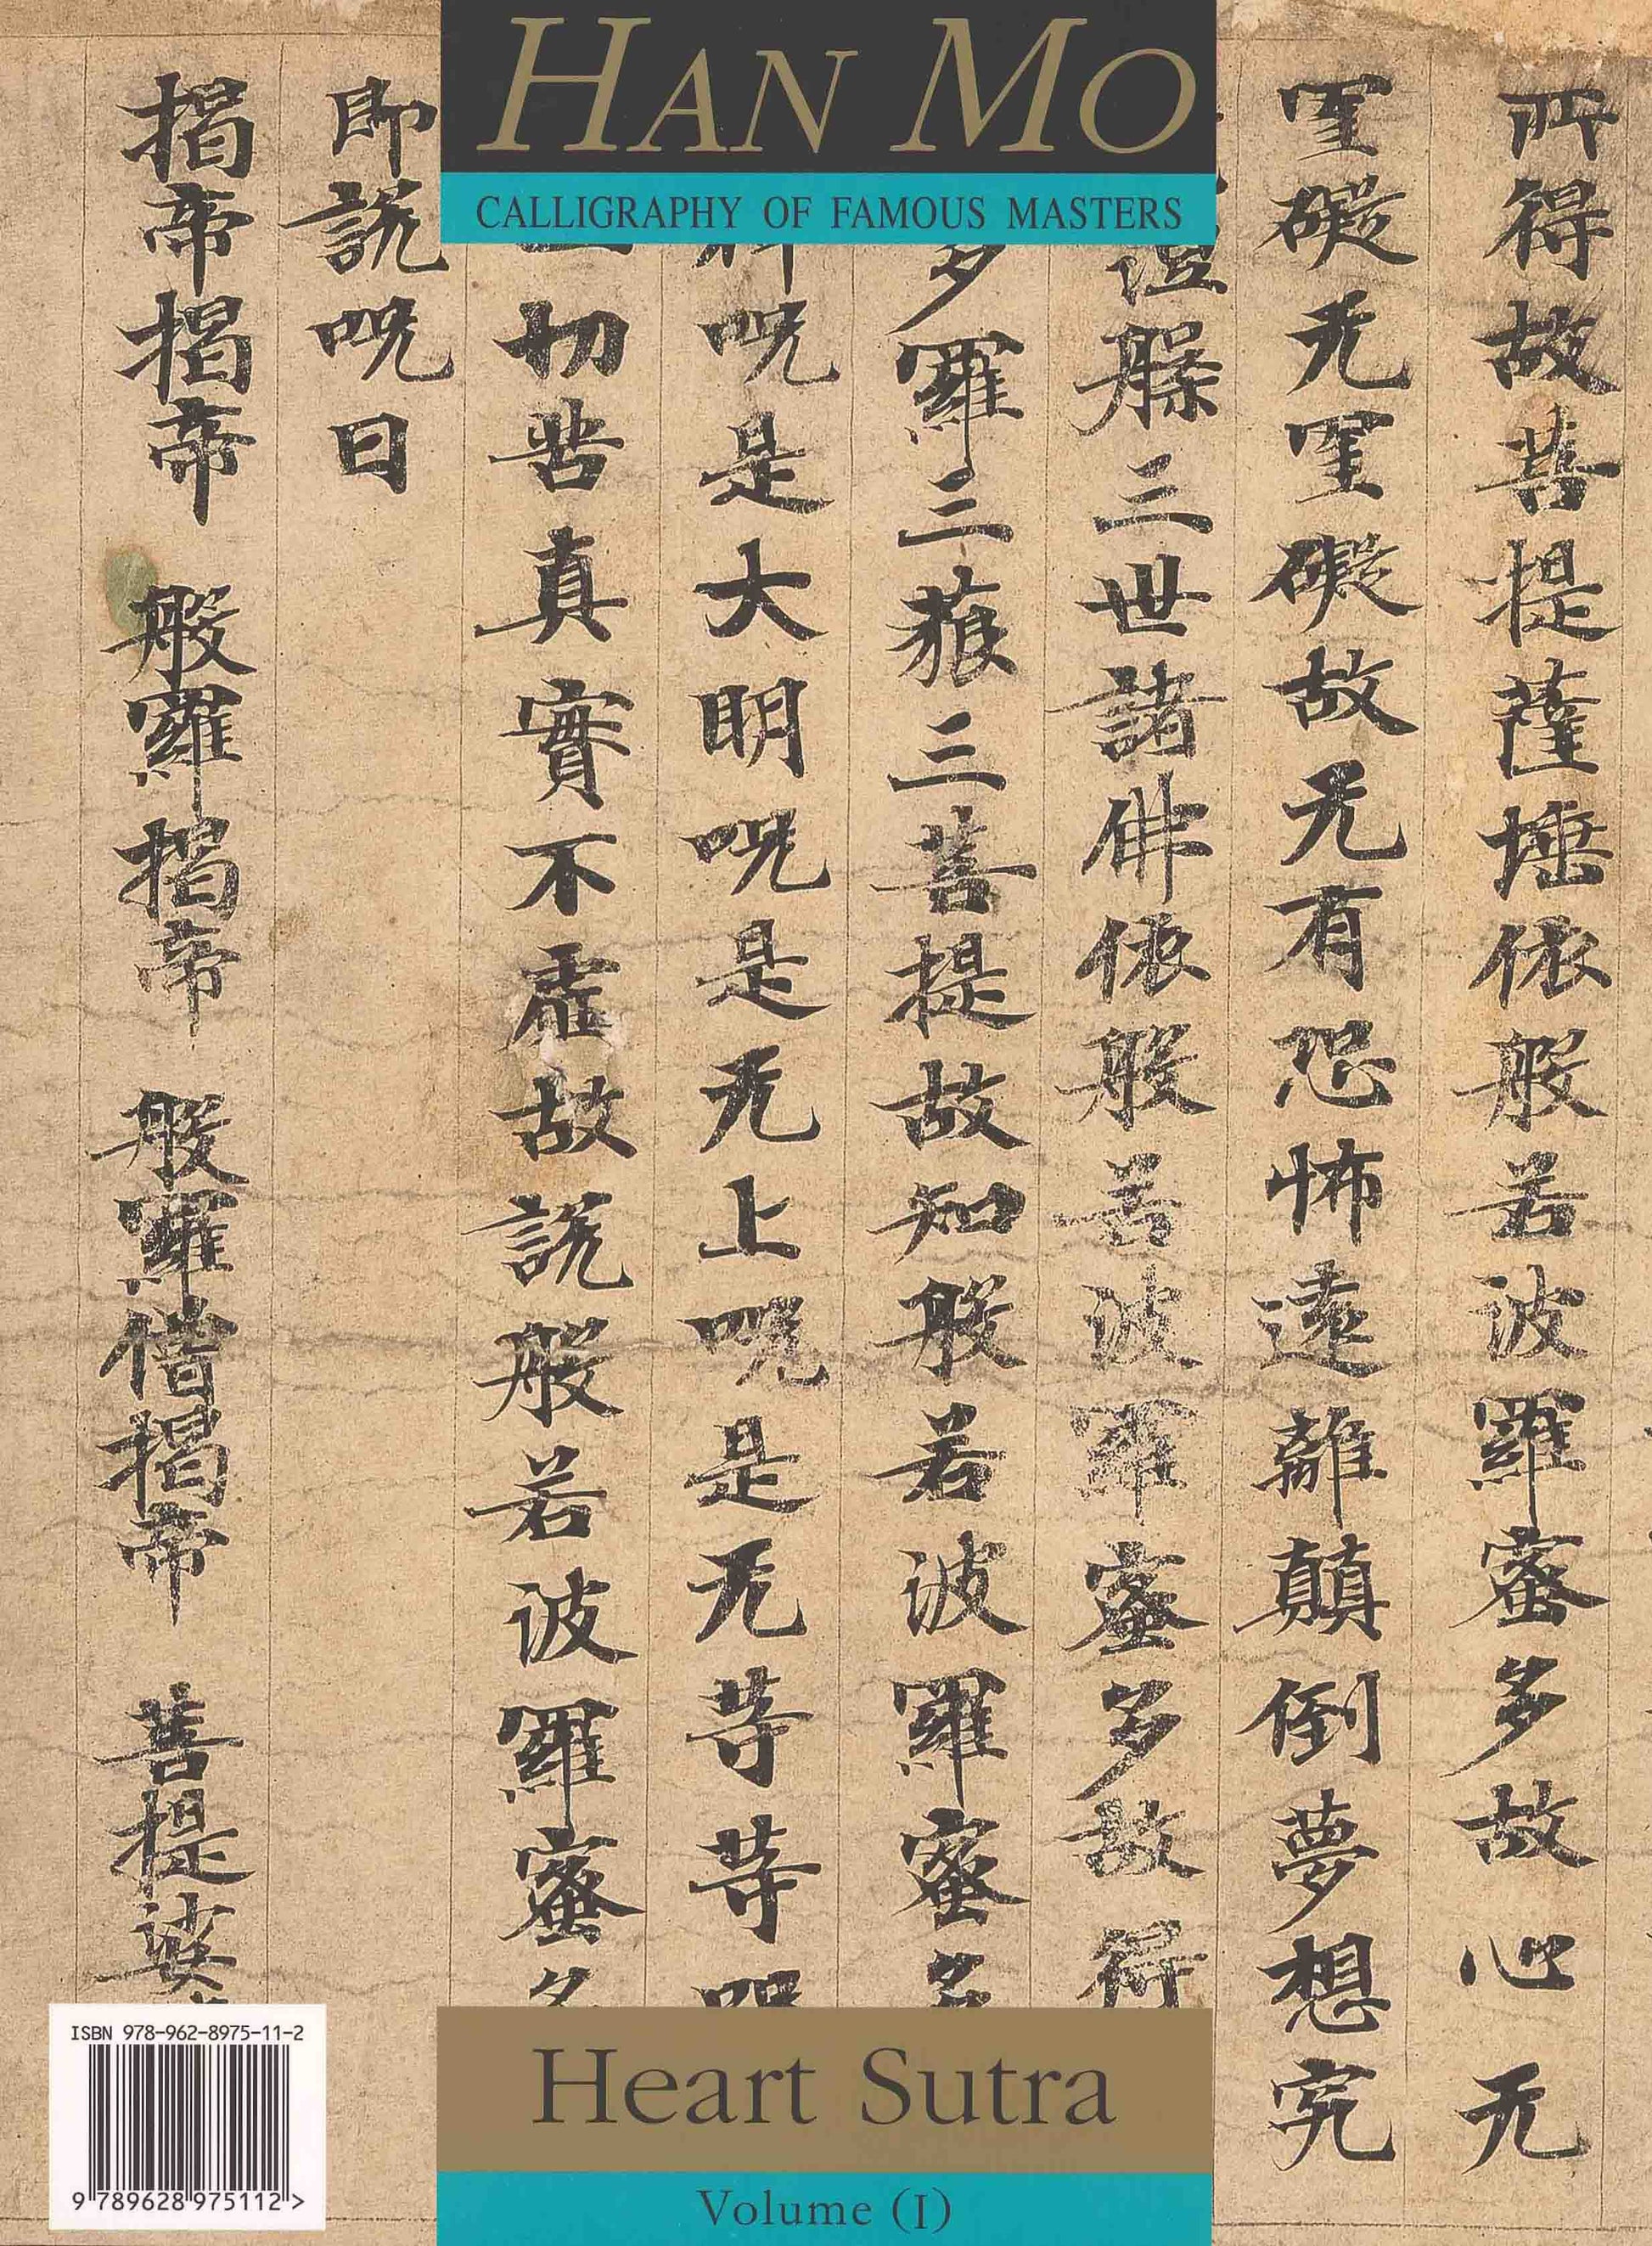 HAN MO
CALLIGRAPHY OF FAMOUS MASTERS
所得故菩提薩埵依般若波羅蜜多故心无
罣礙无罣礙故无有恐怖遠離顛倒夢想究
三世諸佛依般若波羅蜜多故得
多羅三藐三菩提故知般若波羅蜜多
呪是大明呪是无上呪是无等等呪
切苦真實不虛故說般若波羅蜜多
即說呪曰
揭帝揭帝 般羅揭帝 般羅僧揭帝 菩提娑
Heart Sutra
Volume (I)
ISBN 978-962-8975-11-2
9 789628 975112 >